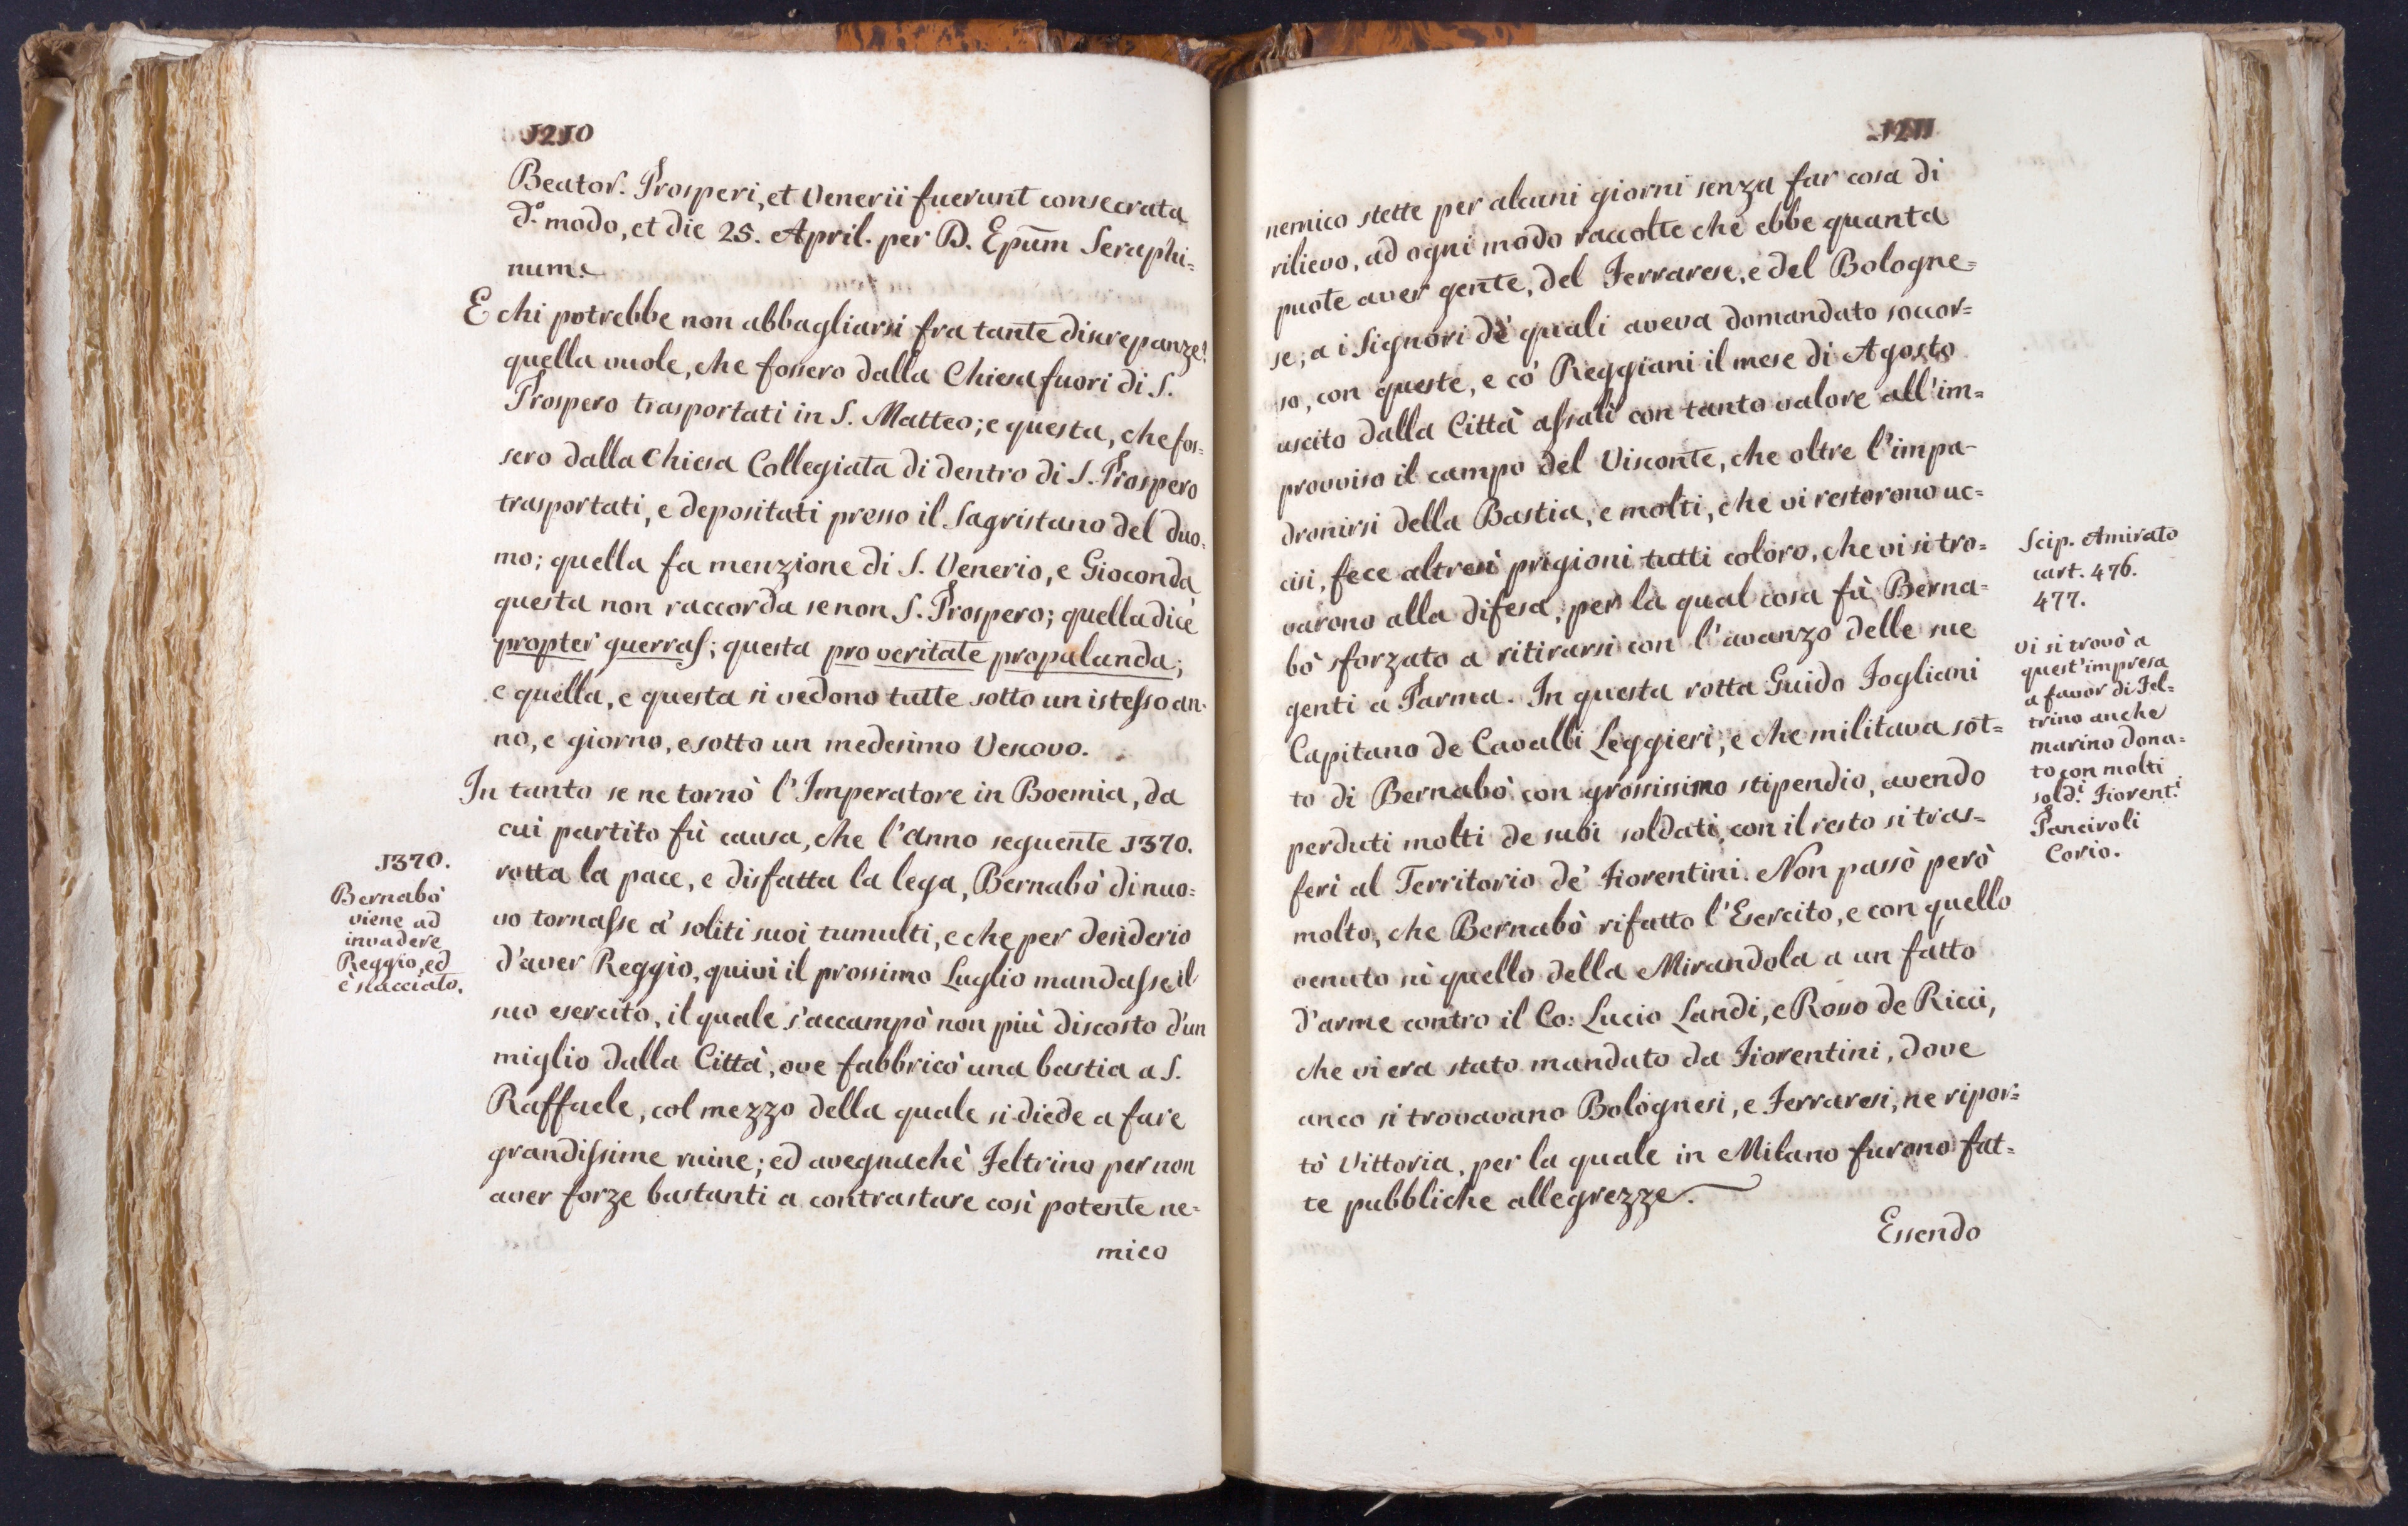 1210
Beator. Prosperi, et Venerii fuerunt consecrata
d.º modo, et die 25. April. per D. Epūm Seraphi=
num.
E chi potrebbe non abbagliarsi fra tante discrepanze!
quella vuole, che fossero dalla Chiesa fuori di S.
Prospero trasportati in S. Matteo; e questa, che fos=
sero dalla Chiesa Collegiata di dentro di S. Prospero
trasportati, e depositati presso il Sagristano del duo=
mo; quella fa menzione di S. Venerio, e Gioconda
questa non raccorda se non S. Prospero; quella dice
propter guerras; questa pro veritate propalanda;
e quella, e questa si vedono tutte sotto un istesso an=
no, e giorno, e sotto un medesimo Vescovo.
In tanto se ne tornò l'Imperatore in Boemia, da
cui partito fù causa, che l'Anno seguente 1370.
rotta la pace, e disfatta la lega, Bernabò di nuo=
vo tornasse a' soliti suoi tumulti, e che per desiderio
d'aver Reggio, quivi il prossimo Luglio mandasse il
suo esercito, il quale s'accampò non più discosto d'un
miglio dalla Città, ove fabbricò una bastia a S.
Raffaele, col mezzo della quale si diede a fare
grandissime ruine; ed avegnachè Feltrino per non
aver forze bastanti a contrastare così potente ne=
mico
1370.
Bernabò
viene ad
invadere
Reggio, ed
è scacciato.
1211
nemico stette per alcuni giorni senza far cosa di
rilievo, ad ogni modo raccolte che ebbe quanta
puote aver gente, del Ferrarese, e del Bologne=
se, a i Signori de' quali aveva domandato soccor=
so, con queste, e co' Reggiani il mese di Agosto
uscito dalla Città assalì con tanto valore all'im=
provviso il campo del Visconte, che oltre l'impa-
dronirsi della Bastia, e molti, che vi restorono uc=
cisi, fece altresì prigioni tutti coloro, che vi si tro=
varono alla difesa, per la qual cosa fù Berna=
bò sforzato a ritirarsi con l'avanzo delle sue
genti a Parma. In questa rotta Guido Fogliani
Capitano de Cavalli Leggieri, e che militava sot=
to di Bernabò con grossissimo stipendio, avendo
perduti molti de suoi soldati, con il resto si tras=
ferì al Territorio de' Fiorentini. Non passò però
molto, che Bernabò rifatto l'Esercito, e con quello
venuto sù quello della Mirandola a un fatto
d'arme contro il Co: Lucio Landi, e Rosso de Ricci,
che vi era stato mandato da Fiorentini, dove
anco si trovavano Bolognesi, e Ferraresi, ne ripor=
tò Vittoria, per la quale in Milano furono fat=
te pubbliche allegrezze.
Essendo
Scip. Amirato
cart. 476.
477.
vi si trovò a
quest'impresa
a favor di Fel=
trino anche
marino dona=
to con molti
sold.i Fiorent.i
Panciroli
Corio.